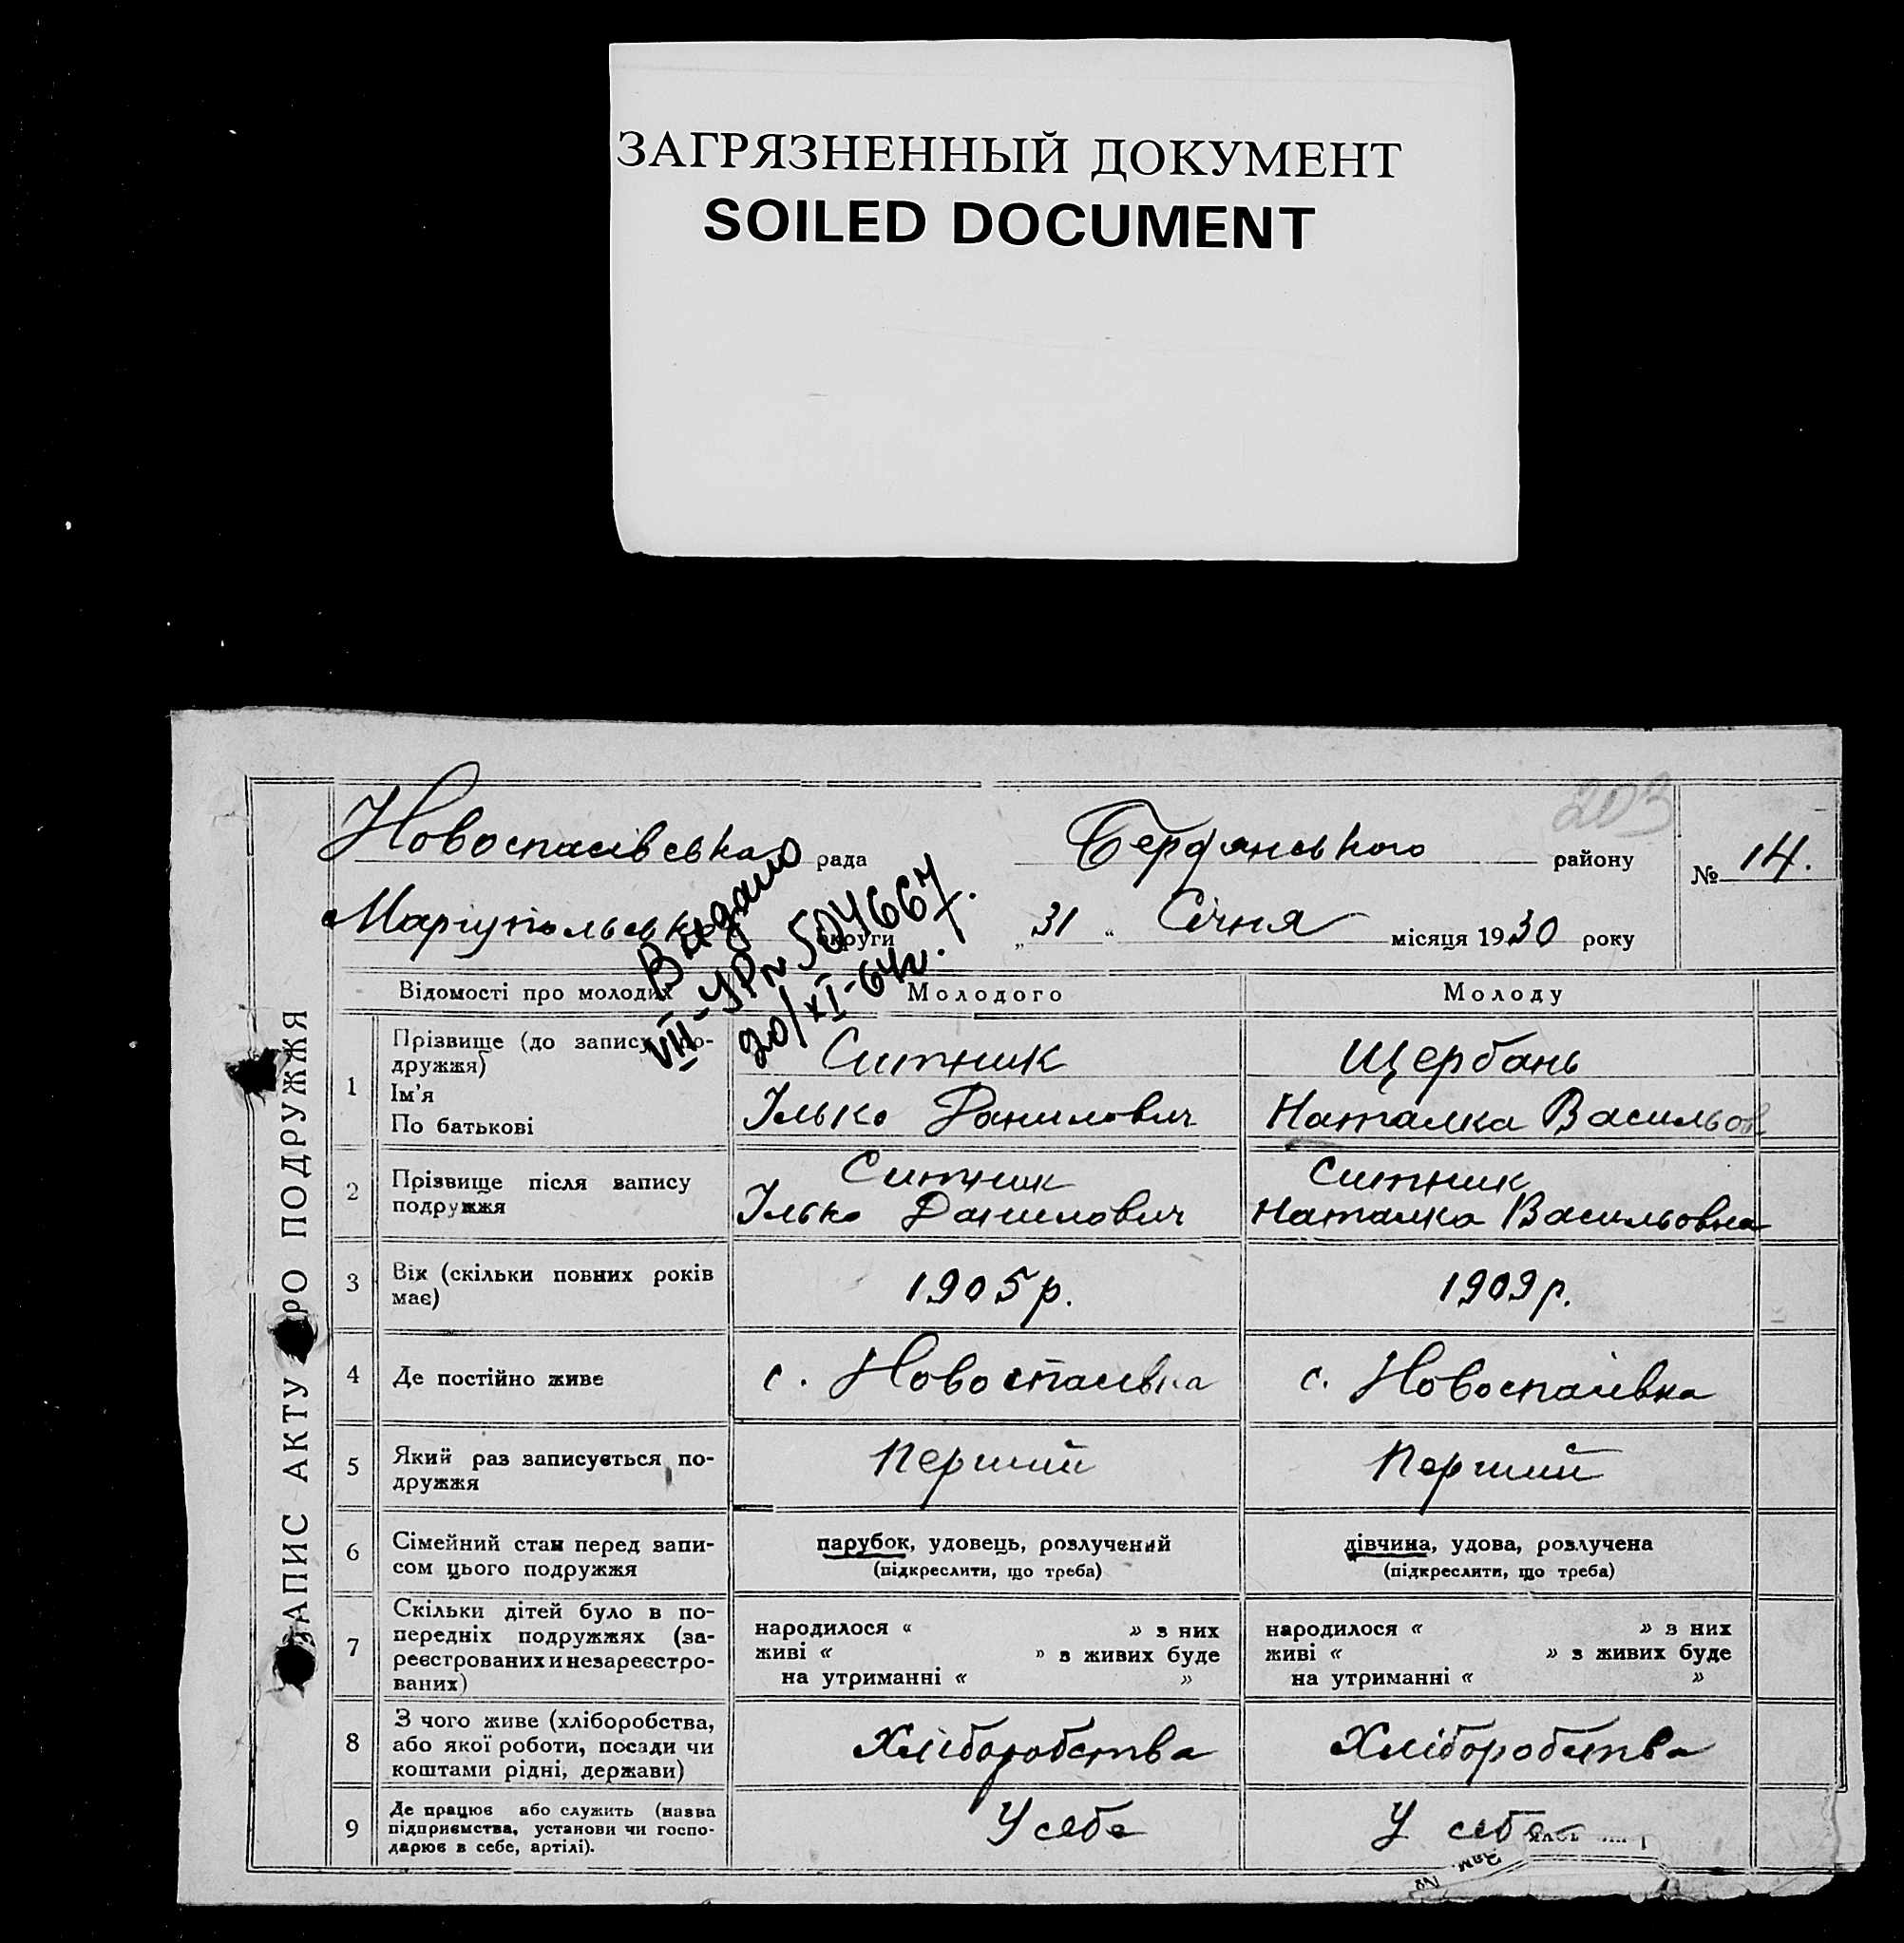 ЗАГРЯЗНЕННЫЙ ДОКУМЕНТ
SOILED DOCUMENT
203
Новоспасівська рада Бердянського району № 14.
Маріупольської округи „31“ Січня місяця 1930 року
Видано
VIII-УР № 504667.
20/XI-64р.
ЗАПИС АКТУ ПРО ПОДРУЖЖЯ
Відомості про молодих Молодого Молоду
1 Прізвище (до запису по-
дружжя) Ситник Щербань
Ім'я
По батькові Ілько Данилович Наталка Васильов
2 Прізвище після запису
подружжя Ситник Ситник
Ілько Данилович Наталка Васильовна
3 Вік (скільки повних років
має) 1905 р. 1909 р.
4 Де постійно живе с. Новоспасівка с. Новоспасівка
5 Який раз записується по-
дружжя Перший Перший
6 Сімейний стан перед запи-
сом цього подружжя парубок, удовець, розлучений дівчина, удова, розлучена
(підкреслити, що треба) (підкреслити, що треба)
7 Скільки дітей було в по-
передніх подружжях (за-
реєстрованих и незареєстро-
ваних) народилося « » з них народилося « » з них
живі « » з живих буде живі « » з живих буде
на утриманні « » на утриманні « »
8 З чого живе (хліборобства,
або якої роботи, посади чи
коштами рідні, держави) Хліборобства Хліборобства
9 Де працює або служить (назва
підприємства, установи чи госпо-
дарює в себе, артілі). У себе У себе